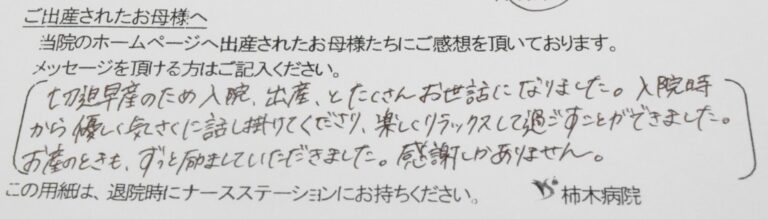 ご出産されたお母様へ
当院のホームページへ出産されたお母様たちにご感想を頂いております。
メッセージを頂ける方はご記入ください。
切迫早産のため入院、出産、とたくさんお世話になりました。入院時
から優しく気さくに話し掛けてくださり、楽しくリラックスして過ごすことができました。
お産のときも、ずっと励ましていただきました。感謝しかありません。
この用紙は、退院時にナースステーションにお持ちください。 柿木病院